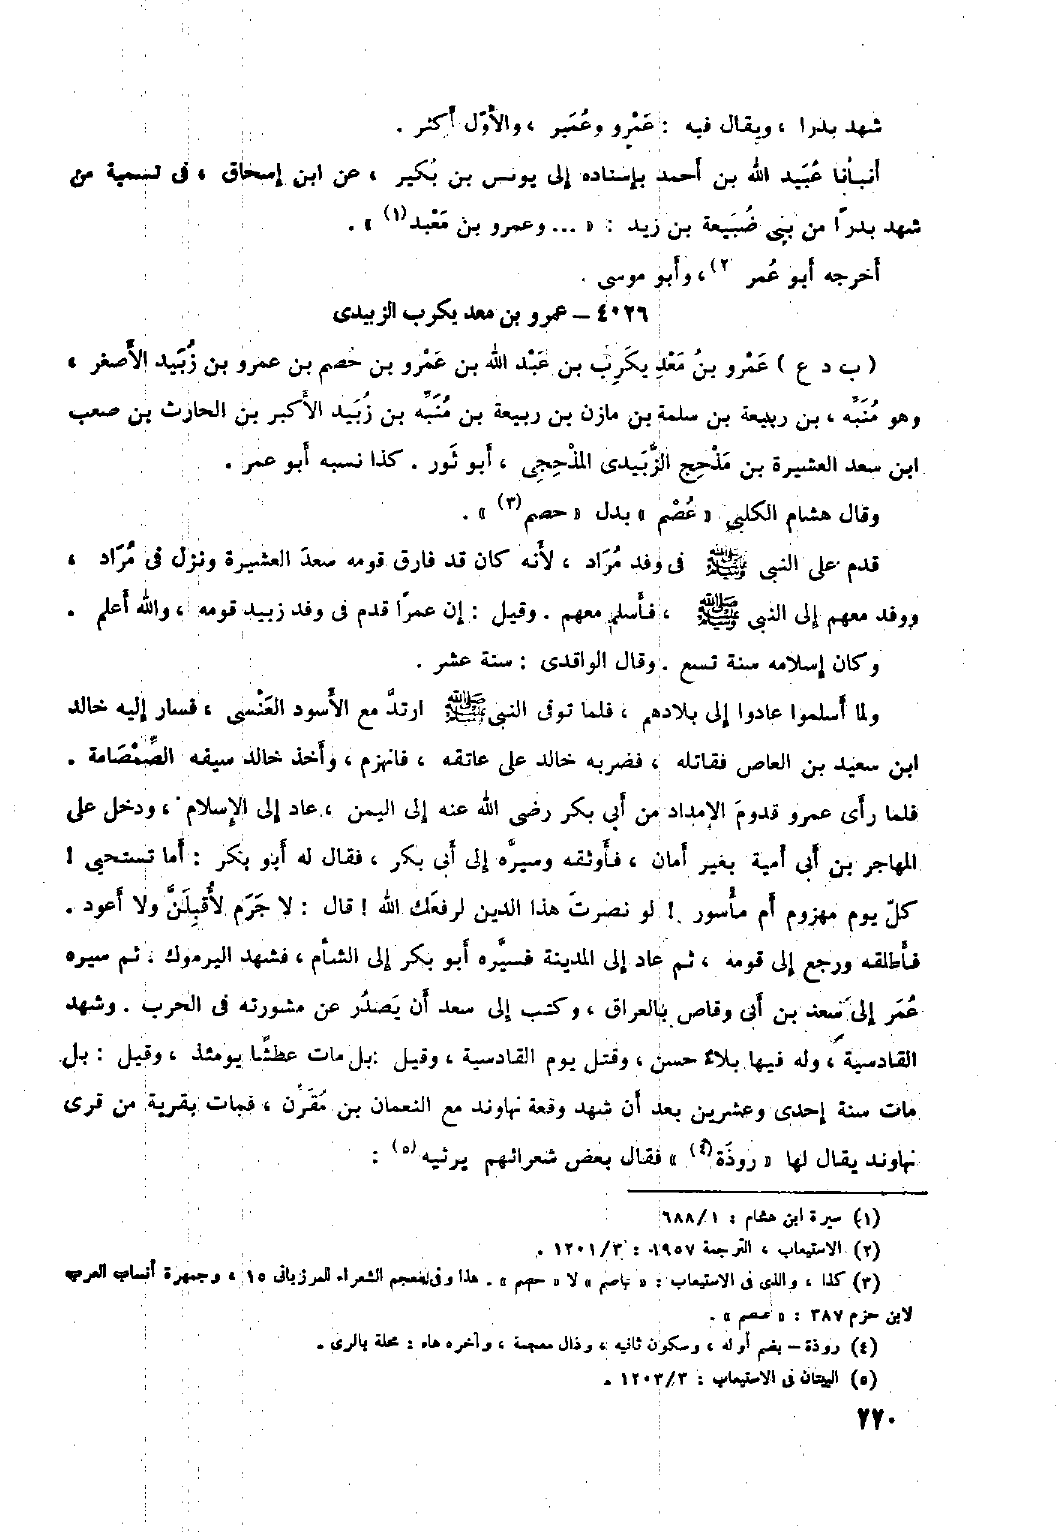 شهد بدرا ، ويقال فيه : عَمْرو وعُمَير ، والأَوّل أَكثر .
أَنبأَنا عُبَيد الله بن أَحمد بإسناده إلى يونس بن بُكير ، عن ابن إسحاق ، فى تسمية من
شهد بدرًا من بنِى ضُبَيعة بن زيد : « ... وعمرو بن مَعْبد(١) » .
أَخرجه أَبو عُمر ٢)، وأَبو موسى .
٤٠٢٦ – عمرو بن معد يكرب الزبيدى
( ب د ع ) عَمْرو بنُ مَعْدِ يكَرِبَ بن عَبْد الله بن عَمْرو بن خُصم بن عمرو بن زُبَيد الأَصغر ،
وهو مُنَبِّه ، بن ربيعة بن سلمة بن مازن بن ربيعة بن مُنَبِّه بن زُبَيد الأَكبر بن الحارث بن صعب
ابن سعد العشيرة بن مَذْحِج الزُّبَيدى المذْحِجِى ، أَبو ثَور . كذا نسبه أَبو عمر .
وقال هشام الكلبي « عُصْم » بدل « خصم(٣) » .
قدم على النبى ﷺ فى وفد مُرَاد ، لأَنه كان قد فارق قومه سعدَ العشيرة ونزل فى مُرَاد ،
ووفد معهم إلى النبى ﷺ ، فأَسلم معهم . وقيل : إن عمرًا قدم فى وفد زبيد قومه ، والله أَعلم .
وكان إسلامه سنة تسع . وقال الواقدى : سنة عشر .
ولما أَسلموا عادوا إلى بلادهم ، فلما توفى النبى ﷺ ارتدَّ مع الأَسود العَنْسى ، فسار إليه خالد
ابن سعيد بن العاص فقاتله ، فضربه خالد على عاتقه ، فانهزم ، وأَخذ خالد سيفه الصَّمْصَامة .
فلما رأَى عمرو قدومَ الإمداد من أَبى بكر رضى الله عنه إلى اليمن ، عاد إلى الإسلام ، ودخل على
المهاجر بن أَبى أمية بغير أمان ، فأَوثقه وسيرَّه إلى أَبى بكر ، فقال له أَبو بكر : أَما تستحيى !
كلّ يوم مهزوم أَم مأْسور ! لو نصرتَ هذا الدين لرفعَك الله ! قال : لا جَرَم لأُقبِلَنَّ ولا أَعود .
فأَطلقه ورجع إلى قومه ، ثم عاد إلى المدينة فسيَّره أَبو بكر إلى الشأم ، فشهد اليرموك . ثم سيره
عُمَر إلى سَعد بن أَبى وقاص بالعراق ، وكتب إلى سعد أَن يَصدُر عن مشورته فى الحرب . وشهد
القادسية ، وله فيها بلاءٌ حسن ، وقتل يوم القادسية ، وقيل :بل مات عطشًا يومئذ ، وقيل : بل
مات سنة إحدى وعشرين بعد أَن شهد وقعة نهاوند مع النعمان بن مُقَرِّن ، فمات بقرية من قرى
نهاوند يقال لها « روذَة(٤) » فقال بعض شعرائهم يرثيه(٥) :
(١) سيرة ابن هشام : ٦٨٨/١
(٢) الاستيعاب ، الترجمة ١٩٥٧ : ١٢٠١/٣ .
(٣) كذا ، والذى فى الاستيعاب : « عاصم » لا « خصم » . هذا وفى معجم الشعراء للمرزبانى ١٥ ، وجمهرة أنساب العرب
لابن حزم ٣٨٧ : « عصم » .
(٤) روذة – بضم أوله ، وسكون ثانيه ، وذال معجمة ، وآخره هاء : محلة بالرى .
(٥) البيتان فى الاستيعاب : ١٢٠٣/٣ .
٢٢٠